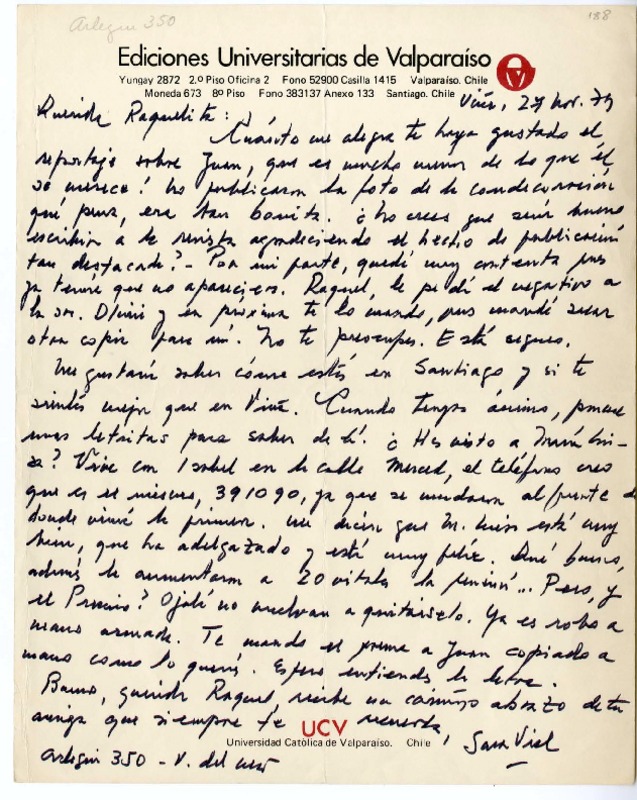 Arlegui 350
188
Ediciones Universitarias de Valparaíso
Yungay 2872 2.º Piso Oficina 2 Fono 52900 Casilla 1415 Valparaíso. Chile
Moneda 673 8º Piso Fono 383137 Anexo 133 Santiago. Chile
Viña, 27 nov. 79
Querida Raquelita:
Cuánto me alegra te haya gustado el
reportaje sobre Juan, que es mucho menor de lo que él
se merece! No publicaron la foto de la condecoración
qué pena, era tan bonita. ¿No crees que sería bueno
escribir a la revista agradeciendo el hecho de publicación
tan destacada? - Por mi parte, quedé muy contenta pues
ya temía que no apareciera. Raquel, le pedí el negativo a
la Sra. y en próxima te lo mando, pues mandé sacar
otra copia para mí. No te preocupes. Está seguro.
Me gustaría saber cómo estás en Santiago y si te
sientes mejor que en Viña. Cuando tengas ánimo, ponme
unas letritas para saber de ti. ¿Has visto a María Lui-
sa? Vive con Isabel en la calle Merced, el teléfono creo
que es el mismo, 391090, ya que se mudaron al frente de
donde vivía la primera. Me dicen que M. Luisa está muy
bien, que ha adelgazado y está muy feliz. Qué bueno,
además le aumentaron a 20 vitales la pensión... Pero, y
el Premio? Ojalá no vuelvan a quitárselo. Ya es robo a
mano armada. Te mando el poema a Juan copiado a
mano como lo querías. Espero entiendas la letra.
Bueno, querida Raquel, recibe un cariñoso abrazo de tu
amiga que siempre te recuerda,
UCV
Universidad Católica de Valparaíso. Chile
Sara Vial
Arlegui 350 - V. del Mar